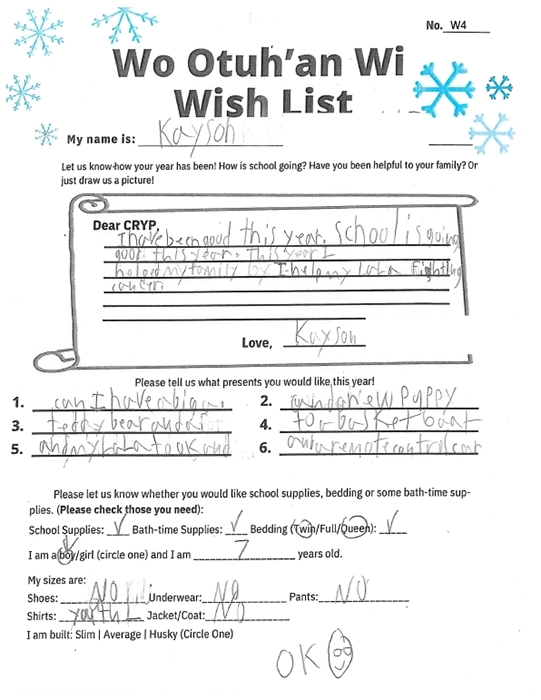 No. W4
Wo Otuh'an Wi
Wish List
My name is: Kayson
Let us know how your year has been! How is school going? Have you been helpful to your family? Or
just draw us a picture!
Dear CRYP,
I have been good this year. School is going
good this year. This year I
helped my family by I help my LaLa Fighting
cancer.
Love, Kayson
Please tell us what presents you would like this year!
1. can I have a big a 2. and a new Puppy
3. teddy bear and a 4.
5. and my LaLa to ok and 6. and a remote control car
Please let us know whether you would like school supplies, bedding or some bath-time sup-
plies. (Please check those you need):
School Supplies: √ Bath-time Supplies: √ Bedding (Twin/Full/Queen): √
I am a boy/girl (circle one) and I am 7 years old.
My sizes are:
Shoes: NO Underwear: NO Pants: NO
Shirts: youth L Jacket/Coat: NO
I am built: Slim | Average | Husky (Circle One)
OK